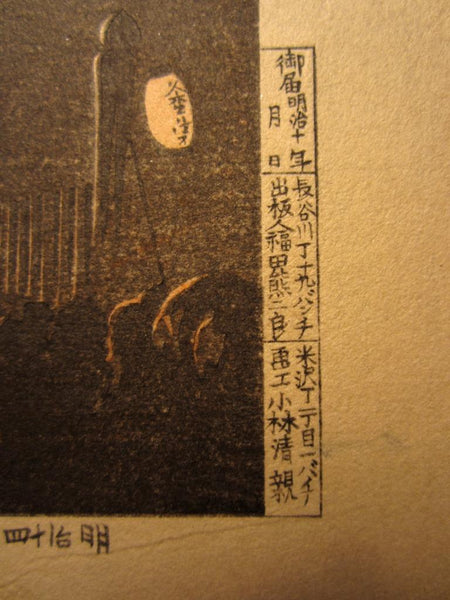 御届明治十年
月日
長谷川丁十九バンチ
出板人福田熊二良
米沢丁二丁目一バンチ
画工小林清親
明治十四